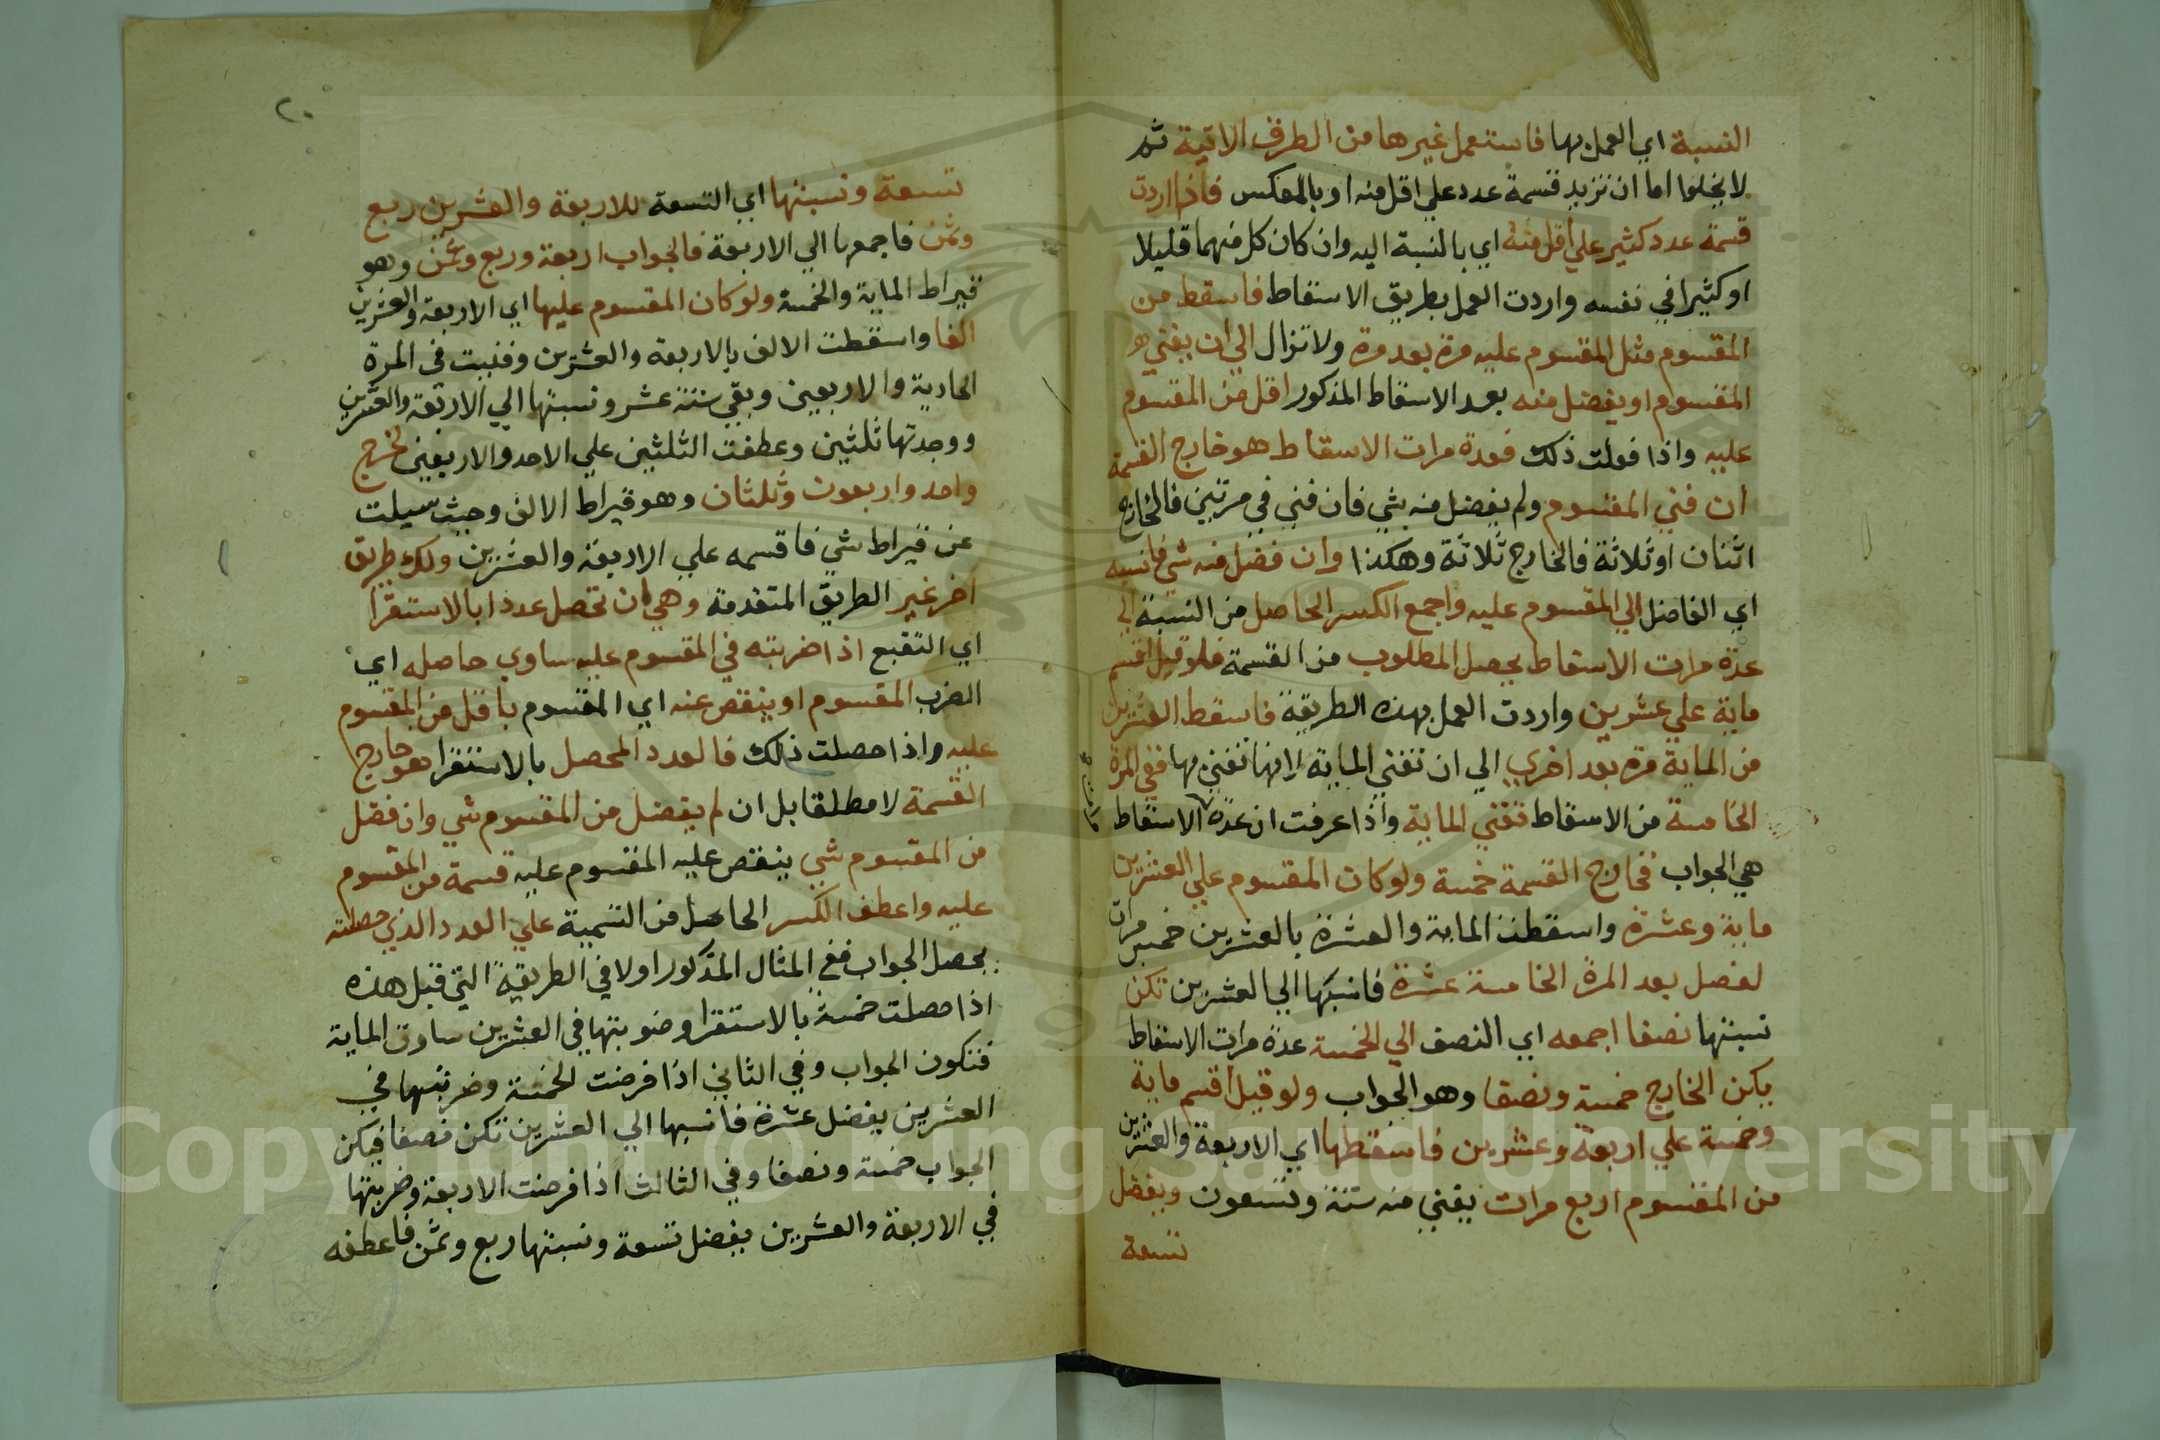 النسبة اي العمل بها فاستعمل غيرها من الطرق الاتية ثم
لا يخلوا اما ان تزيد قسمة عدد علي اقل منه او بالعكس فاذا اردت
قسمة عدد كثير علي اقل منه اي بالنسبة اليه وان كان كل منهما قليلا
او كثيرا في نفسه واردت العمل بطريق الاسقاط فاسقط من
المقسوم مثل المقسوم عليه مرة بعد مرة ولا تزال الي ان يفني هو
المقسوم او يفضل منه بعد الاسقاط المذكور اقل من المقسوم
عليه واذا فعلت ذلك فعدة مرات الاسقاط هو خارج القسمة
ان فني المقسوم ولم يفضل منه شي فان فني في مرتين فالخارج
اثنان او ثلاثة فالخارج ثلاثة وهكذا وان فضل منه شي فانسبه
اي الفاضل الي المقسوم عليه واجمع الكسر الحاصل من النسبة الي
عدة مرات الاسقاط يحصل المطلوب من القسمة فلو قيل اقسم
ماية علي عشرين واردت العمل بهذه الطريقة فاسقط العشرين
من الماية مرة بعد اخري الي ان تفني الماية لانها تفني بها ففي المرة
الخامسة من الاسقاط تفني الماية واذا عرفت ان عدة الاسقاط
مرات
هي الجواب فخارج القسمة خمسة ولو كان المقسوم علي العشرين
ماية وعشرة واسقطت الماية والعشرة بالعشرين خمس مرات
لفضل بعد المرة الخامسة عشرة فانسبها الي العشرين تكن
نسبتها نصفا اجمعه اي النصف الي الخمسة عدة مرات الاسقاط
يكن الخارج خمسة ونصفا وهو الجواب ولو قيل اقسم ماية
وخمسة علي اربعة وعشرين فاسقطها اي الاربعة والعشرين
من المقسوم اربع مرات يفني منه ستة وتسعون ويفضل
تسعة
٢٠
تسعة ونسبتها اي التسعة للاربعة والعشرين ربع
وثمن فاجمعها الي الاربعة فالجواب اربعة وربع وثمن وهو
قيراط الماية والخمسة ولو كان المقسوم عليها اي الاربعة والعشرين
الفا واسقطت الالف بالاربعة والعشرين وفنيت في المرة
الحادية والاربعين وبقي ستة عشر ونسبتها الي الاربعة والعشرين
ووجدتها ثلثين وعطفت الثلثين علي الاحد والاربعين لخرج
واحد واربعون وثلثان وهو قيراط الالف وحيث سيلت
عن قيراط شي فاقسمه علي الاربعة والعشرين ولك طريق
اخر غير الطريق المتقدمة وهي ان تحصل عددا بالاستقرا
اي التتبع اذا ضربته في المقسوم عليه ساوي حاصله اي
الضرب المقسوم او ينقص عنه اي المقسوم باقل من المقسوم
عليه واذا حصلت ذلك فالعدد المحصل بالاستقرا هو خارج
القسمة لا مطلقا بل ان لم يفضل من المقسوم شي وان فضل
من المقسوم شي ينقص عليه المقسوم عليه قسمة من المقسوم
عليه واعطف الكسر الحاصل من التسمية علي العدد الذي حصلته
يحصل الجواب ففي المثال المذكور اولا في الطريقة التي قبل هذه
اذا حصلت خمسة بالاستقرا وضوبتها في العشرين ساوت الماية
فتكون الجواب وفي الثاني اذا فرضت الخمسة وضربتها في
العشرين يفضل عشرة فانسبها الي العشرين تكن نصفا فيكن
الجواب خمسة ونصفا وفي الثالث اذا فرضت الاربعة وضربتها
في الاربعة والعشرين يفضل تسعة ونسبتها ربع وثمن فاعطفه
Copyright © King Saud University